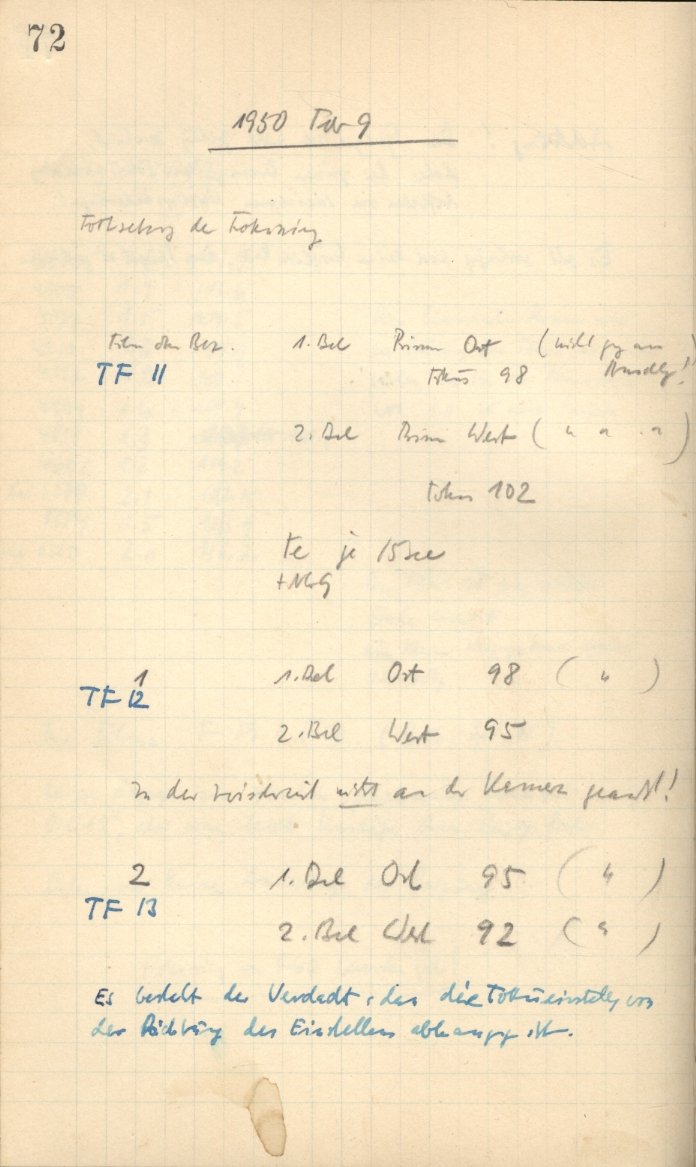 72
1950 Febr 9
Fortsetzung der Fokussierung
Film ohne Bez. 1. Bel Prisma Ost (nicht ganz am
TF 11 Fokus 98 Anschlag!)
2. Bel Prisma West ( " " " )
Fokus 102
Te je 15 sec
1 1. Bel Ost 98 ( " )
TF 12
2. Bel West 95
In der Zwischenzeit nicht an der Kamera gearb!
2 1. Bel Ost 95 ( " )
TF 13
2. Bel West 92 ( " )
Es besteht der Verdacht, dass die Fokuseinstellg von
der Richtung des Einstellens abhängig ist.